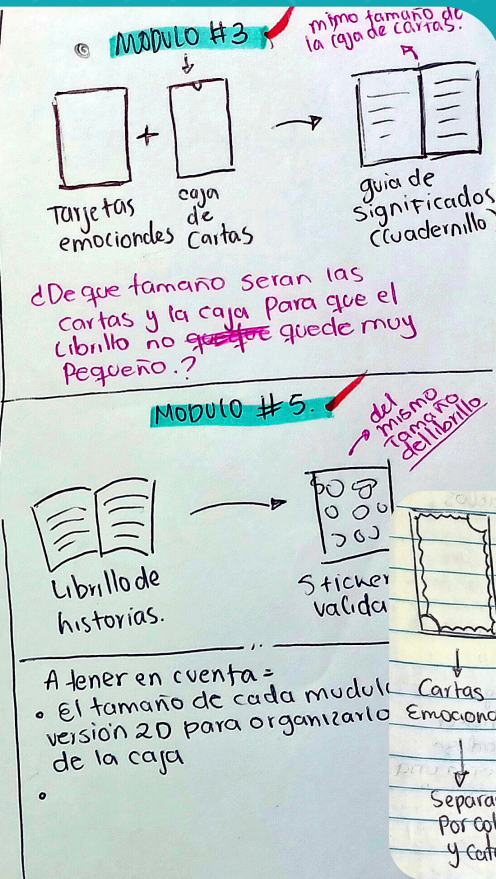 MODULO #3
mismo tamaño de
la caja de cartas.
+
Tarjetas
emociondes
caja
de
Cartas
guia de
significados
(cuadernillo)
¿De que tamaño seran las
cartas y la caja Para que el
librillo no quede muy
Pequeño.?
MODULO #5.
del
mismo
tamaño
del librillo
Librillo de
historias.
Sticker
valida
A tener en cuenta=
• El tamaño de cada mudulo
versión 2D para organizarlo
de la caja
•
Cartas
Emociona
Separa
Por col
y cat